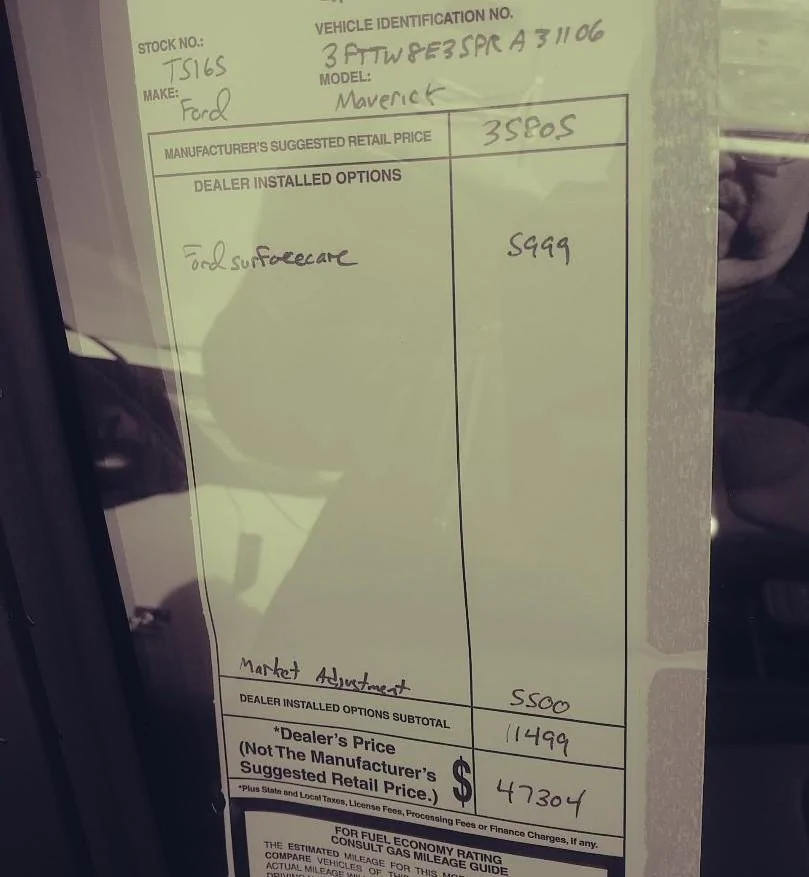 STOCK NO.:
TS165
MAKE:
Ford
VEHICLE IDENTIFICATION NO.
3FTTW8E3SPRA31106
MODEL:
Maverick
MANUFACTURER'S SUGGESTED RETAIL PRICE 35805
DEALER INSTALLED OPTIONS
Ford surfacecare 5999
Market Adjustment 5500
DEALER INSTALLED OPTIONS SUBTOTAL 11499
*Dealer's Price
(Not The Manufacturer's
Suggested Retail Price.) $ 47304
*Plus State and Local Taxes, License Fees, Processing Fees or Finance Charges, if any.
FOR FUEL ECONOMY RATING
CONSULT GAS MILEAGE GUIDE
THE ESTIMATED MILEAGE FOR THIS
COMPARE VEHICLES OF
ACTUAL MILEAGE